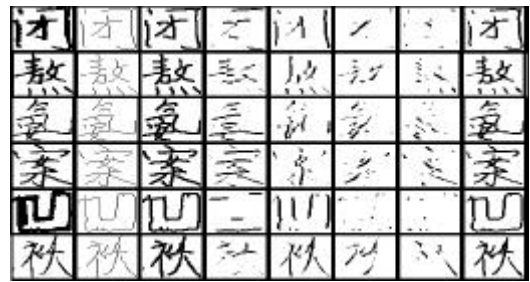 闭 闭 闭 闭
熬 熬 熬 熬
氨 氨 氨 氨
案 案 案 案
凹 凹 凹 凹
袄 袄 袄 袄